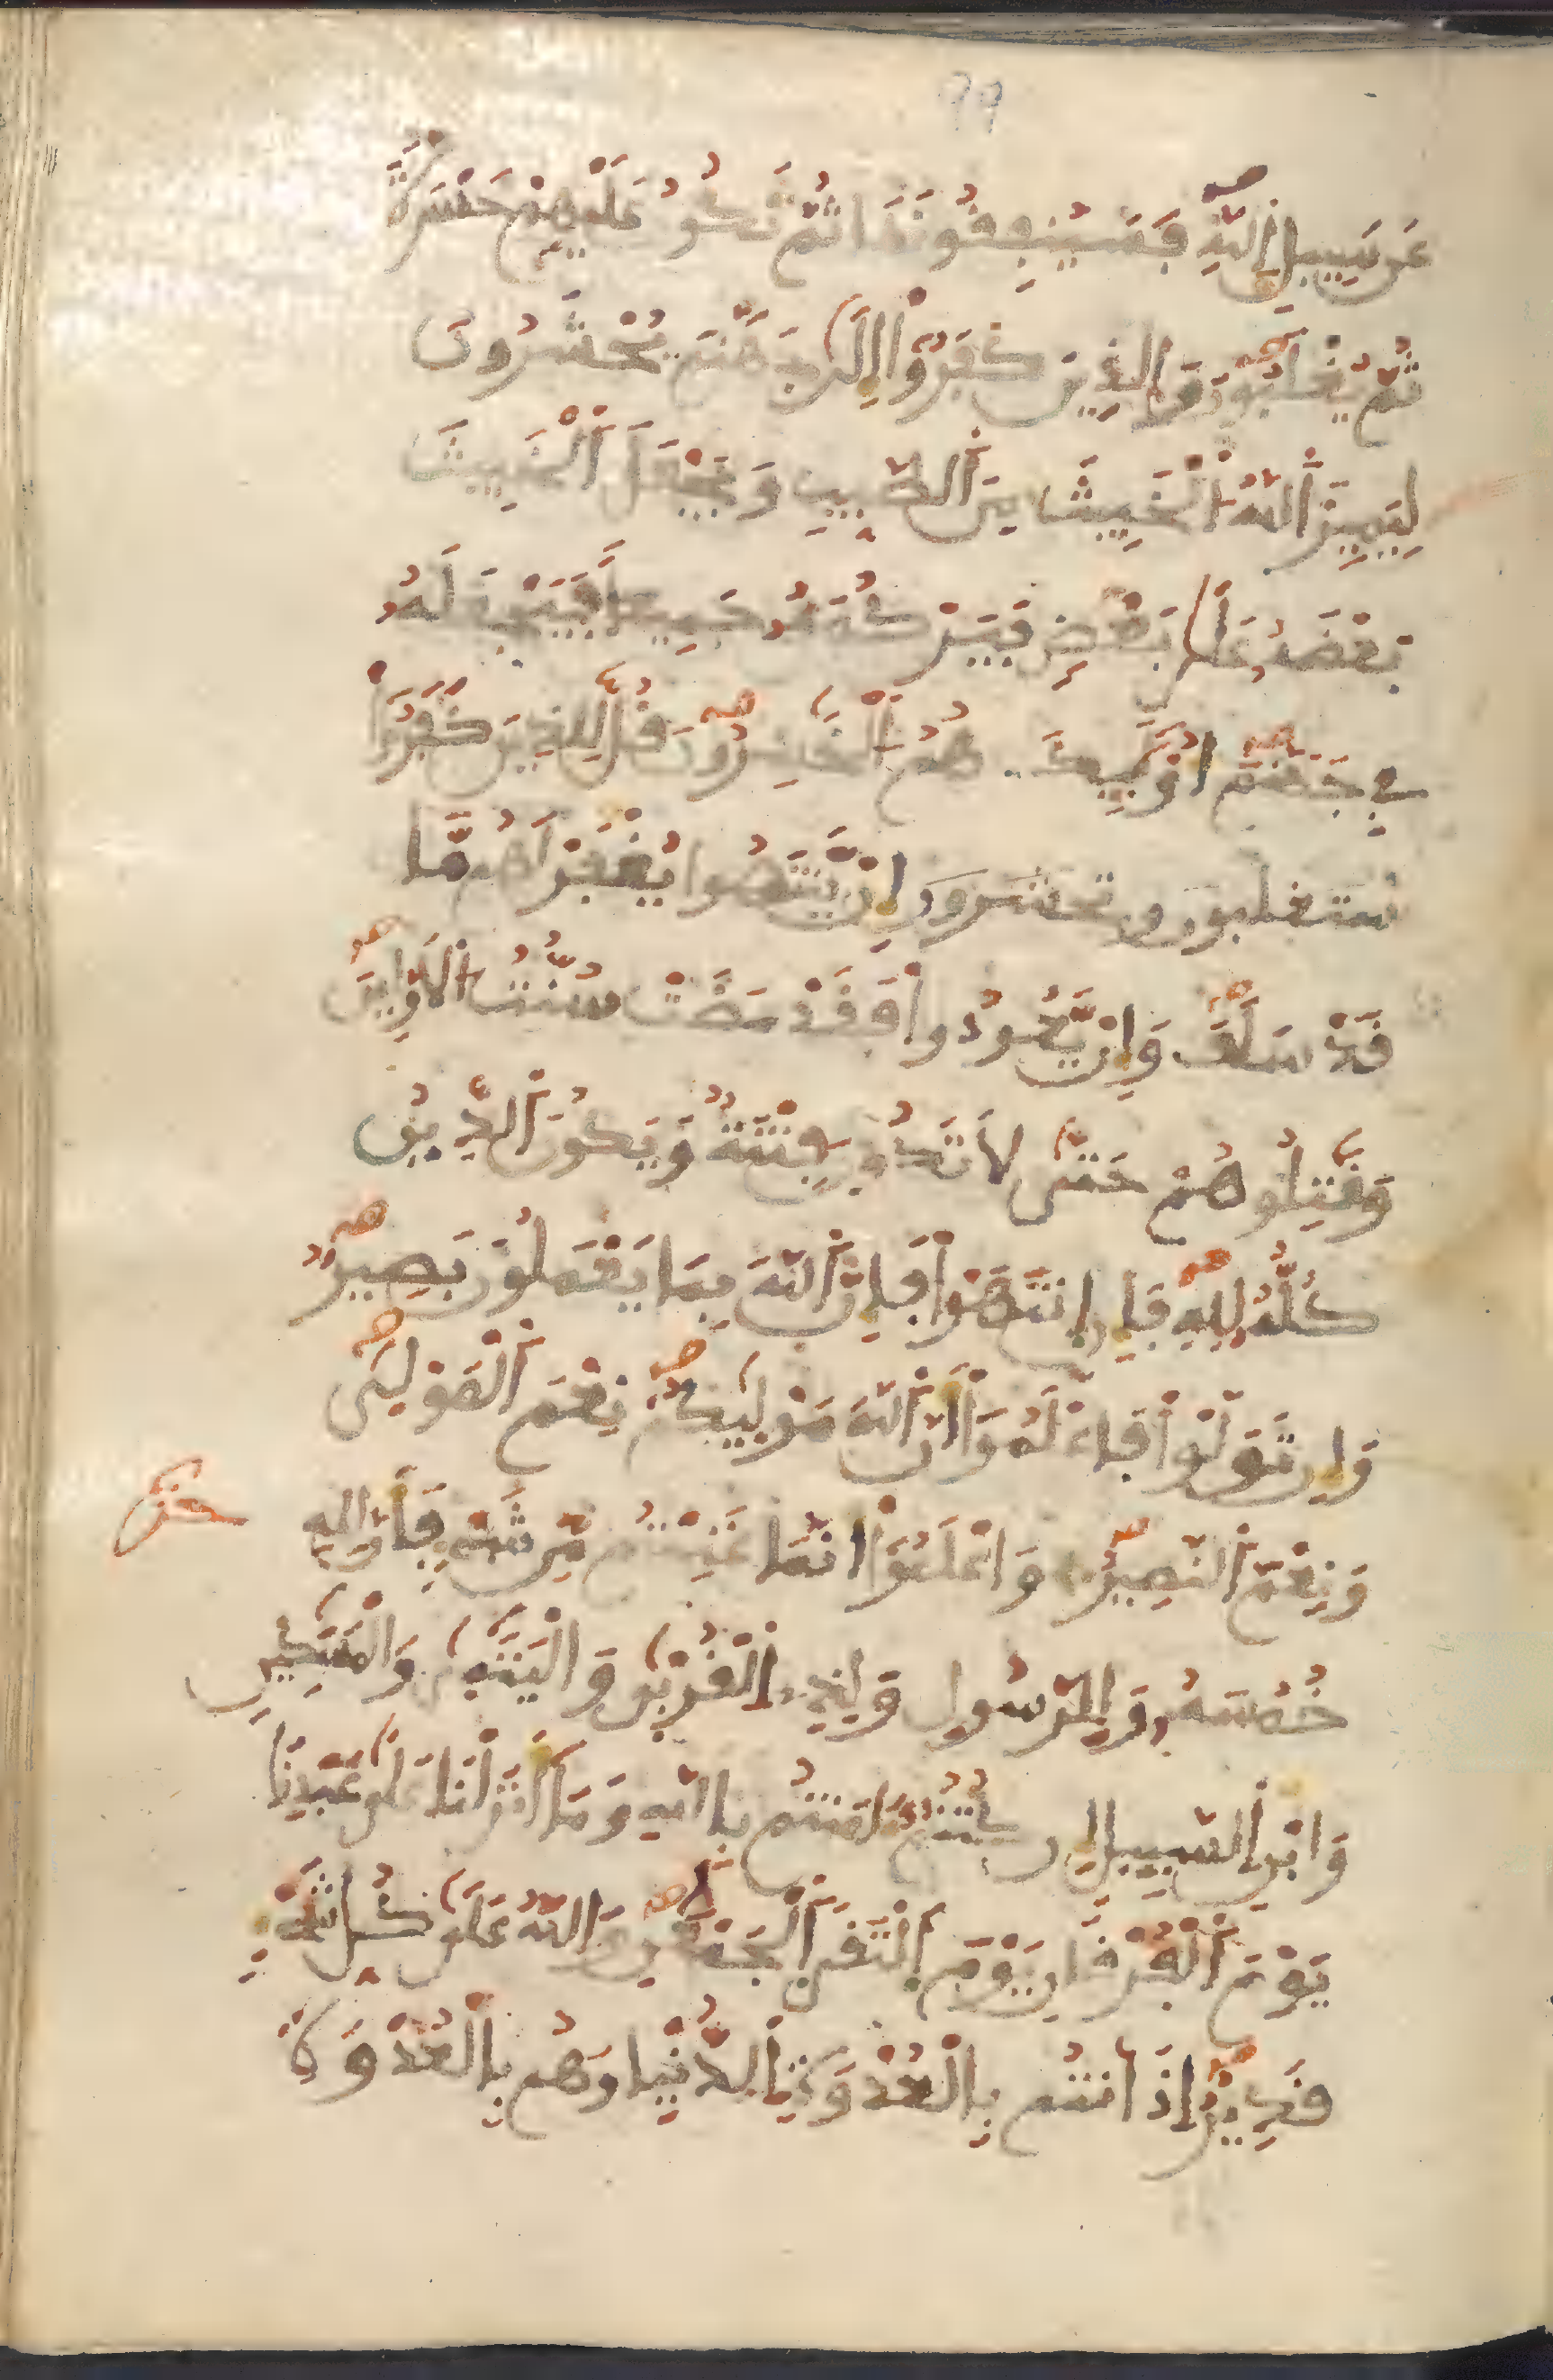 99
عَن سَبِيلِ اِللَّهِ فَسَيُنفِقُونَهَا ثُمَّ تَكُونُ عَلَيْهِمْ حَسْرَةً
ثُمَّ يُغْلَبُونَ وَالذِينَ كَفَرُوا إِلَى جَهَنَّمَ يُحْشَرُونَ
لِيَمِيزَ اَللَّهُ اُلْخَبِيثَ مِنَ اَلطَّيِّبِ وَيَجْعَلَ اَلْخَبِيثَ
بَعْضَهُ عَلَى بَعْضٍ فَيَرْكُمَهُ جَمِيعاً فَيَجْعَلَهُ
فِي جَهَنَّمَ أُوْلَيِكَ هُمُ اُلْخَسِرُونَ قُل لِّلذِينَ كَفَرُوا
ستغلبون وتحشرون إِنْ يَّنتَهُوا يُغْفَرْ لَهُم مَّا
قَدْ سَلَفَ وَإِنْ يَّعُودُوا فَقَدْ مَضَتْ سُنَّتُ اُلاَوَّلِينَ
وَقَتِلُوهُمْ حَتَّى لاَ تَكُونَ فِتْنَةٌ وَيَكُونَ اَلدِّينُ
كُلُّهُ لِلهِ فَإِنِ اِنتَهَوْا فَإِنَّ اَللَّهَ بِمَا يَعْمَلُونَ بَصِيرٌ
وَإِن تَوَلَّوْا فَاعْلَمُوا أَنَّ اَللَّهَ مَوْلَيكُمْ نِعْمَ اَلْمَوْلَى
وَنِعْمَ اَلنَّصِيرُ وَاعْلَمُوا أَنَّمَا غَنِمْتُم مِّن شَيْءٍ فَأَنَّ لِلهِ
حزب
خُمُسَهُ وَلِلرَّسُولِ وَلِذِي اِلْقُرْبَى وَالْيَتَمَى وَالْمَسَكِينِ
وَابْنِ اِلسَّبِيلِ إِن كُنتُمُ ءَامَنتُم بِاللَّهِ وَمَا أَنزَلْنَا عَلَى عَبْدِنَا
يَوْمَ اَلْفُرْقَانِ يَوْمَ اَلْتَقَى اَلْجَمْعَنِ وَاللَّهُ عَلَى كُلِّ شَيْءٍ
قَدِيرٌ إِذَ اَنتُم بِالْعُدْوَةِ اِلدُّنْيَا وَهُم بِالْعُدْوَةِ